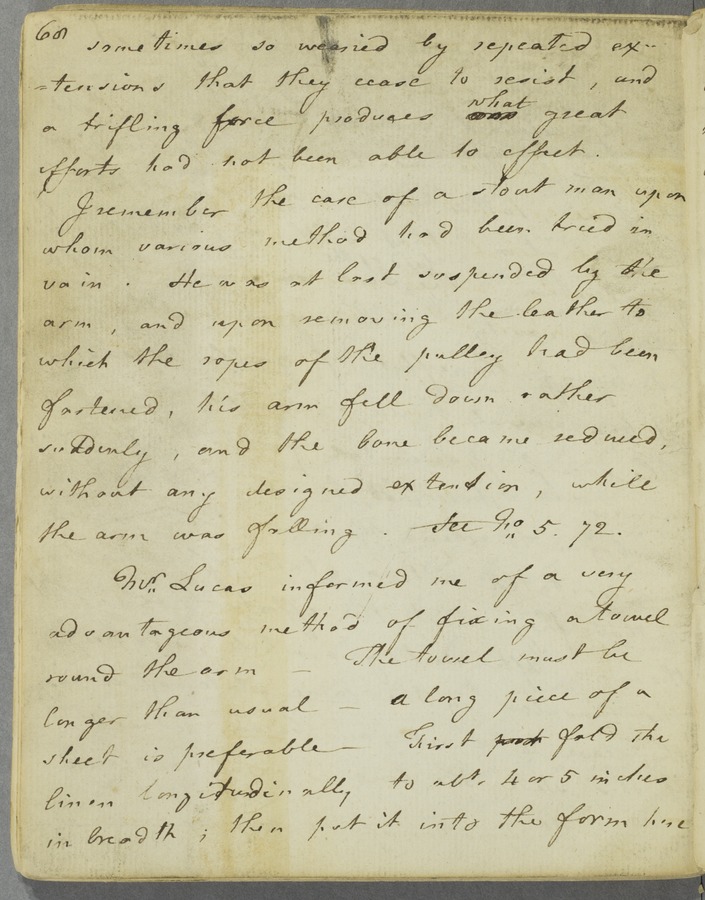 68
sometimes so wearied by repeated ex-
=tensions that they cease to resist, and
a trifling force produces what great
efforts had not been able to effect.
I remember the case of a stout man upon
whom various method had been tried in
vain. He was at last suspended by the
arm, and upon removing the leather to
which the ropes of the pulley had been
fastened, his arm fell down rather
suddenly, and the bone became reduced,
without any designed extension, while
the arm was falling. See No. 5. 72.
Mr. Lucas informed me of a very
advantageous method of fixing a towel
round the arm — The towel must be
longer than usual — a long piece of a
sheet is preferable — First fold the
linen longitudinally to abt. 4 or 5 inches
in breadth; then put it into the form